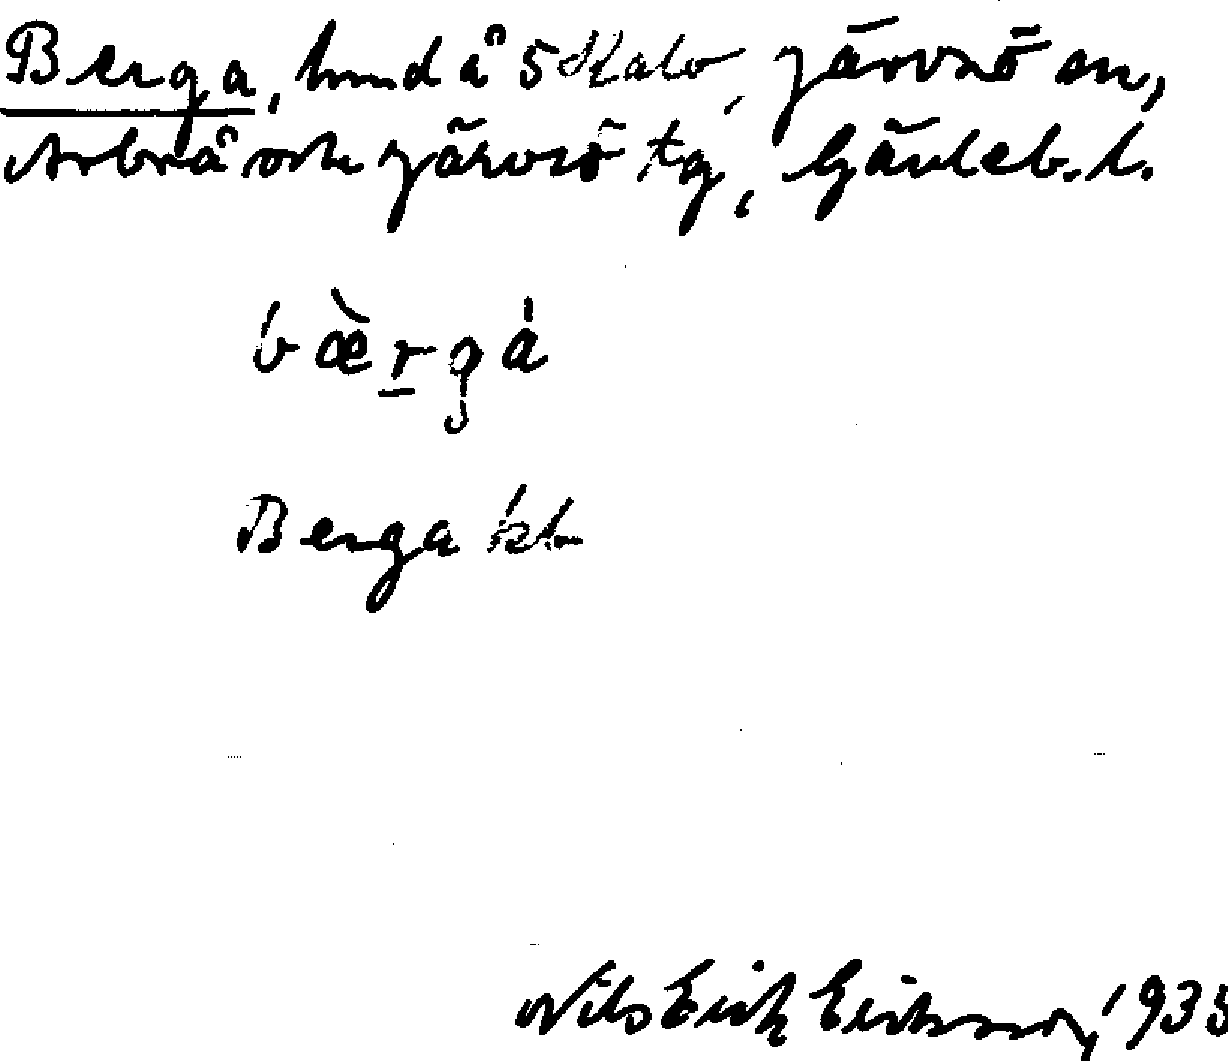 Berga, hmd å 5 Järvsö sn,
Arbrå och Järvsö tg, Gävleb. l.
bæ̀rgá
Berga
Nils Erik Eriksson, 1935